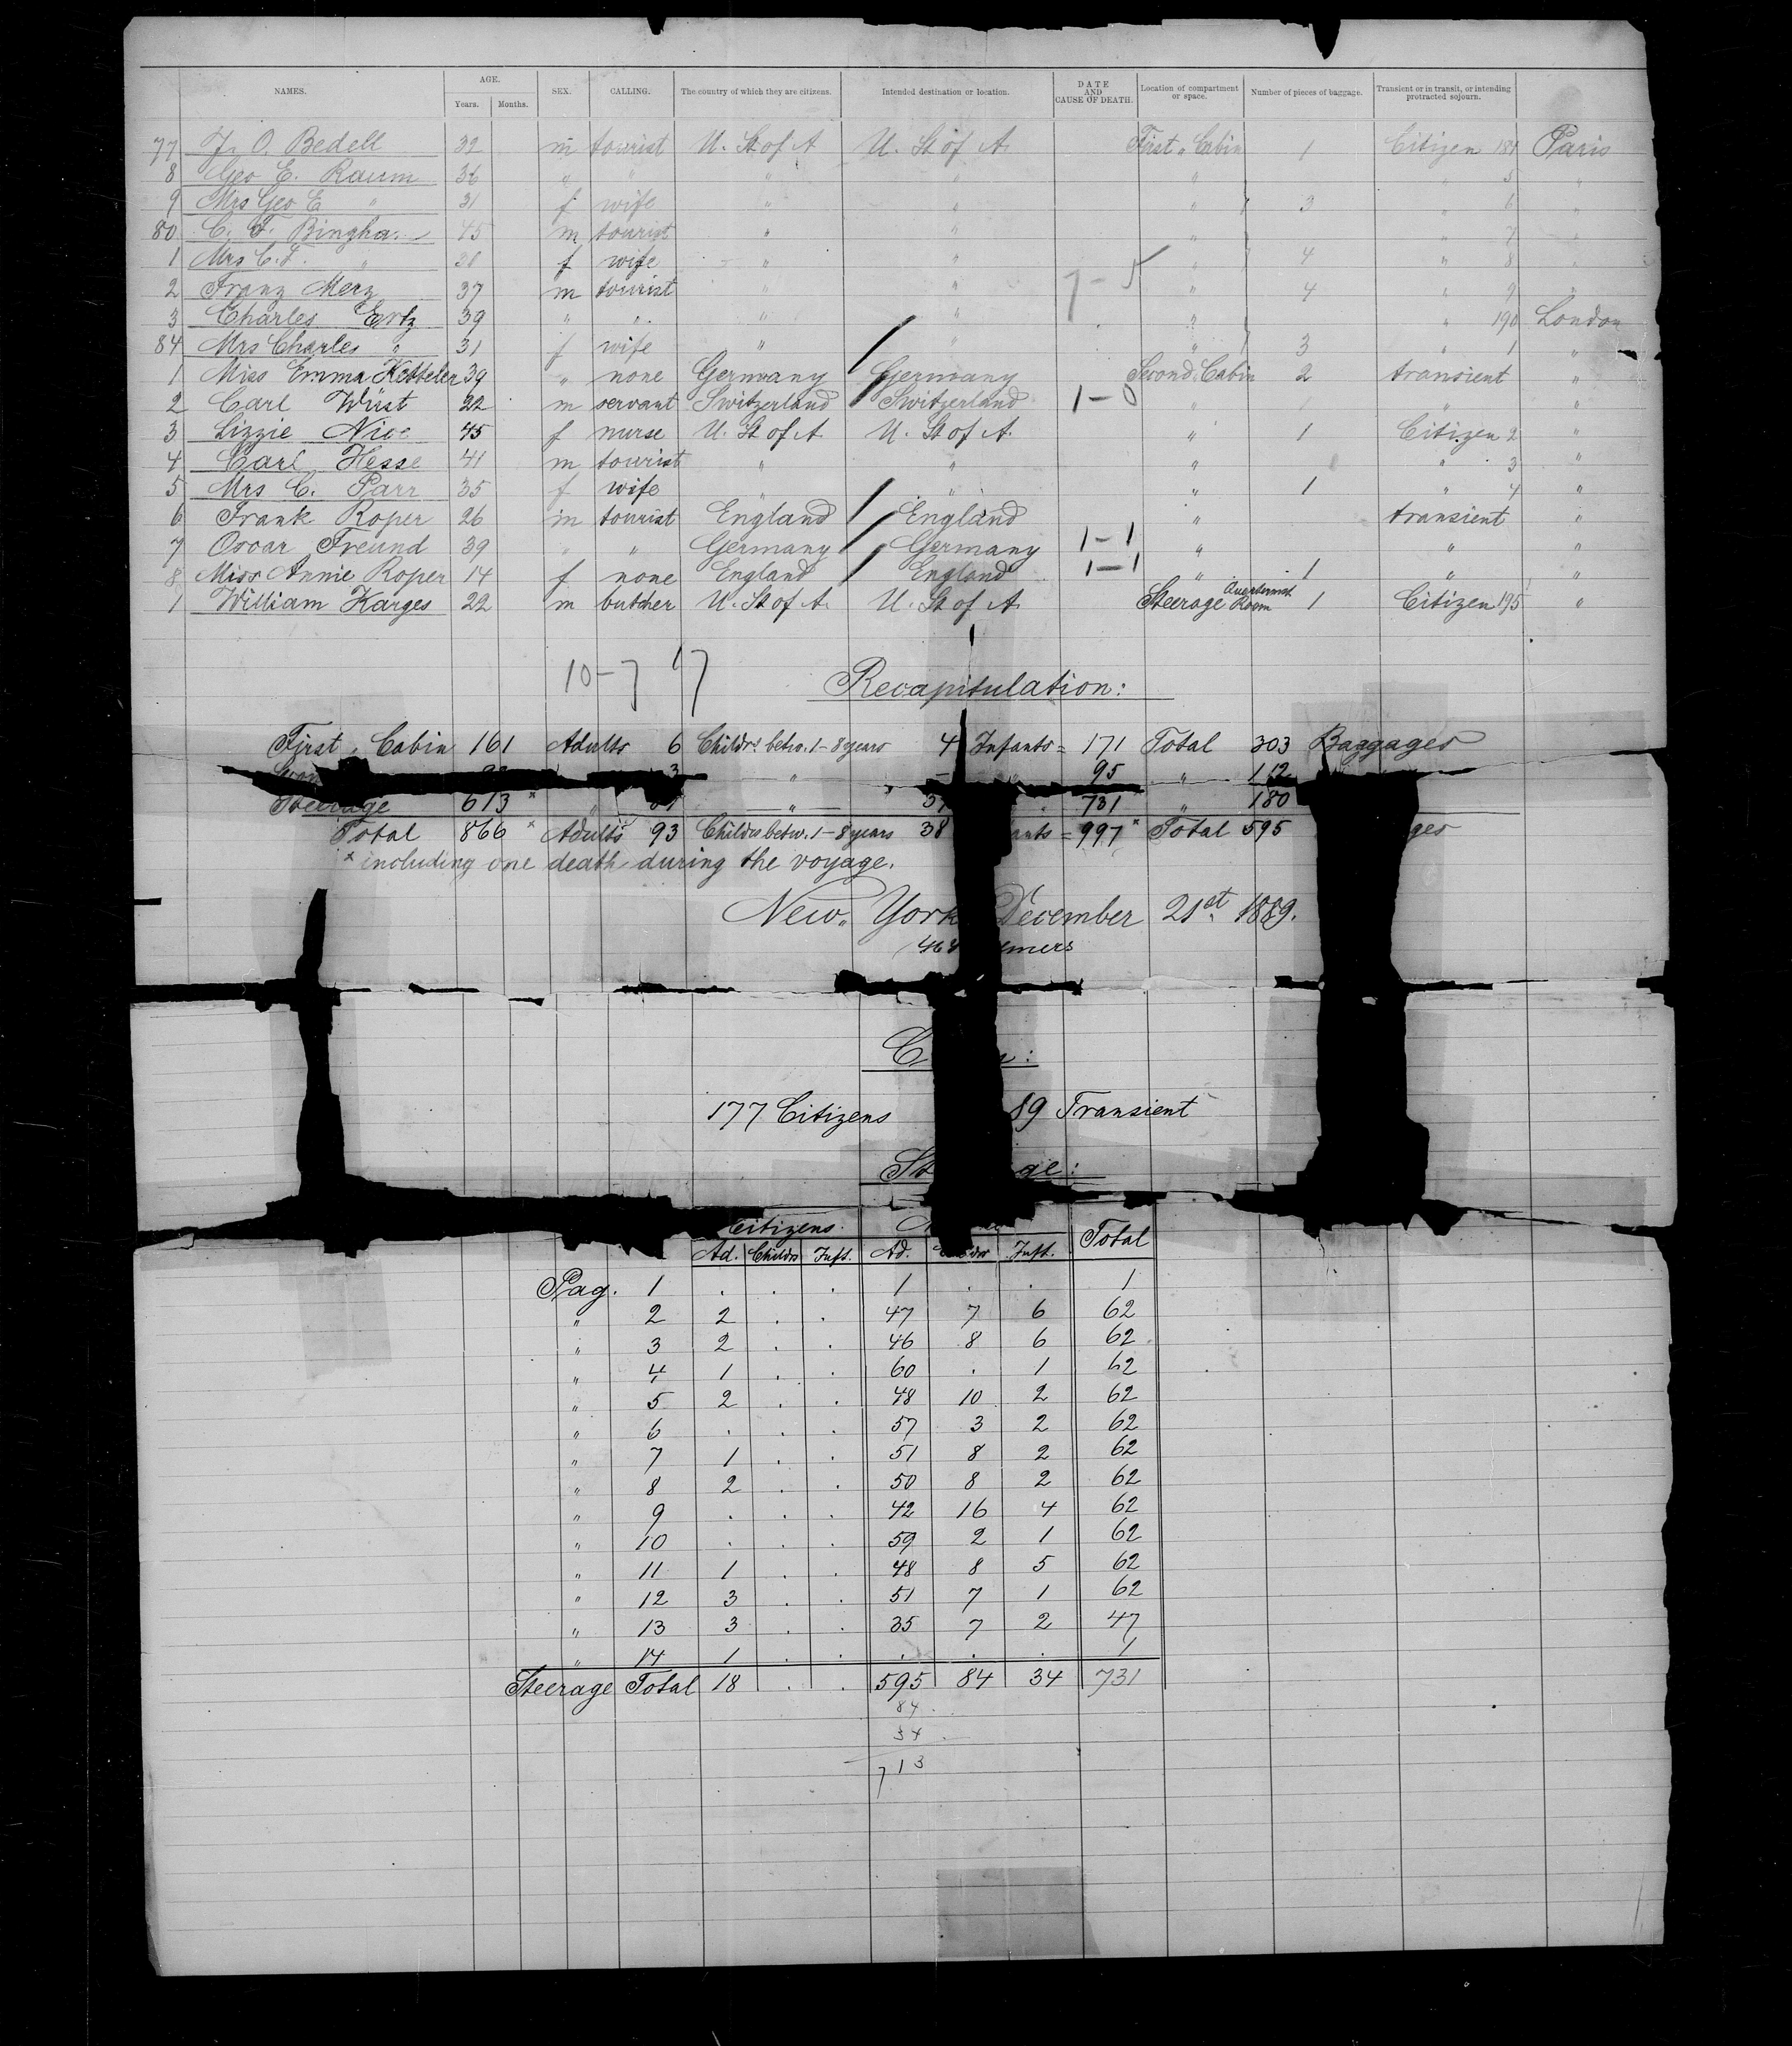 NAMES. AGE. Years. Months. SEX. CALLING. The country of which they are citizens. Intended destination or location. DATE AND CAUSE OF DEATH. Location of compartment or space. Number of pieces of baggage. Transient or in transit, or intending protracted sojourn.
77 F. O. Bedell 32 m tourist U. St of A U. St of A. First " Cabin 1 Citizen 184 Paris
8 Geo E. Raum 36 " " " " " " 5 "
9 Mrs Geo E " 31 f wife " " " } 3 " 6 "
80 C. F. Bingha 45 m tourist " " " " 7 "
1 Mrs C. F. " f wife " " " } 4 " 8 "
2 Franz Merz 37 m tourist " " " 4 " 9 "
3 Charles Ertz 39 " " " " " " 190 London
84 Mrs Charles " 31 f wife " " " } 3 " 1 "
1 Miss Emma Ketteler 39 " none Germany Germany Second " Cabin 2 transient "
2 Carl Wirst 22 m servant Switzerland Switzerland 1-0 " 1 " "
3 Lizzie Nice 45 f nurse U. St of A. U. St of A. " 1 Citizen 2 "
4 Carl Hesse 41 m tourist " " " " 3 "
5 Mrs C. Parr 35 f wife " " " 1 " 4 "
6 Frank Roper 26 m tourist England England " transient "
7 Oscar Freund 39 " " Germany Germany 1-1 " " "
8 Miss Annie Roper 14 f none England England 1-1 " 1 " "
1 William Karges 22 m butcher U. St of A. U. St of A. Steerage Room 1 Citizen 195 "
10-7 17
Recapitulation:
First " Cabin 161 Adults 6 Childrs betw. 1-8 years 4 Infants = 171 Total 303 Baggages
3 " - 95 " 112
Steerage 613* " " 731 " 180
Total 866* Adults 93 Childrs betw. 1-8 years 38 = 997* Total 595
* including one death during the voyage.
New York December 21st 1889.
177 Citizens 89 Transient
Citizens. Total
Ad. Childrs Inft. Ad. Inft.
Pag. 1 . . . 1 . . 1
" 2 2 . . 47 7 6 62
" 3 2 . . 46 8 6 62
" 4 1 . . 60 . 1 62
" 5 2 . . 48 10 2 62
" 6 . . . 57 3 2 62
" 7 1 . . 51 8 2 62
" 8 2 . . 50 8 2 62
" 9 . . . 42 16 4 62
" 10 . . . 59 2 1 62
" 11 1 . . 48 8 5 62
" 12 3 . . 51 7 1 62
" 13 3 . . 35 7 2 47
" 14 1 . . . . . 1
Steerage Total 18 . . 595 84 34 731
84
34
713